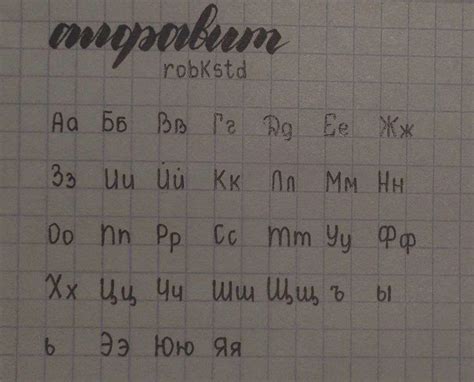 алфавит
robkstd
Аа Бб Вв Гг Дд Ее Жж
Зз Ии Йй Кк Лл Мм Нн
Оо Пп Рр Сс Тт Уу Фф
Хх Цц Чч Шш Щщ ъ ы
ь Ээ Юю Яя